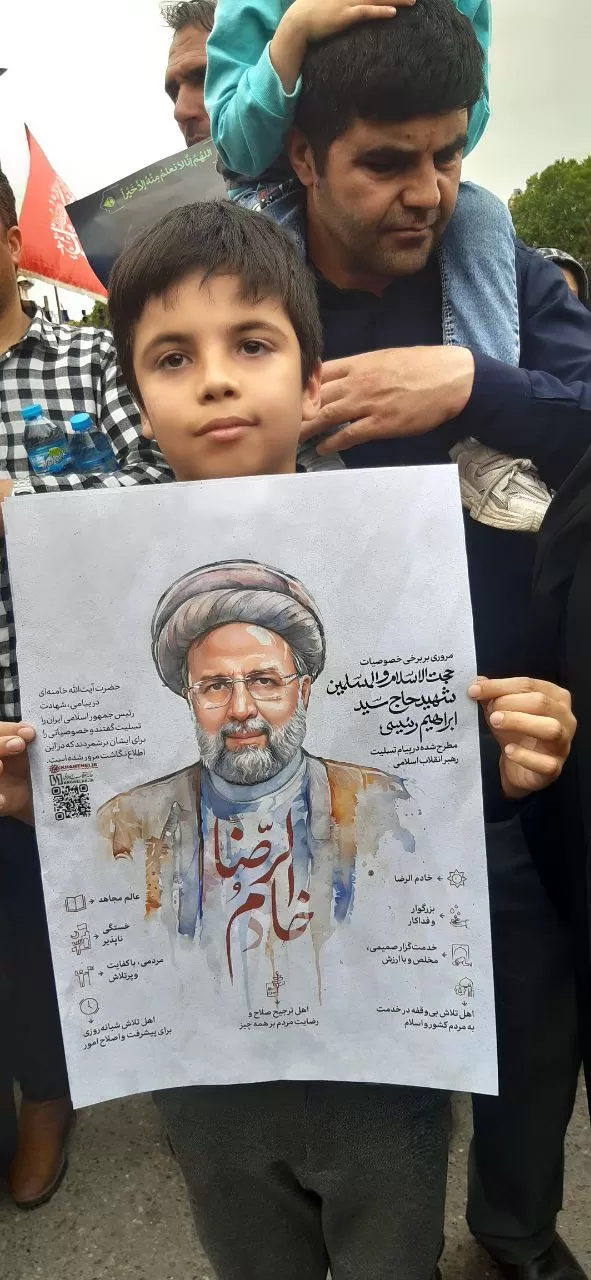 اللهم إنا لا نعلم منه إلا خیراً
مروری بر برخی خصوصیات
حجت‌الاسلام والمسلمین
شهید حاج سید
ابراهیم رئیسی
مطرح شده در پیام تسلیت
رهبر انقلاب اسلامی
حضرت آیت‌الله خامنه‌ای
در پیامی، شهادت
رئیس جمهور اسلامی ایران را
تسلیت گفتند و خصوصیاتی را
برای ایشان برشمردند که در این
اطلاع‌نگاشت مرور شده است.
KHAMENEI.IR
خادم الرضا
خادم الرضا
بزرگوار
و فداکار
خدمتگزار صمیمی،
مخلص و با ارزش
اهل تلاش بی‌وقفه در خدمت
به مردم کشور و اسلام
عالم مجاهد
خستگی
ناپذیر
مردمی، با کفایت
و پرتلاش
اهل تلاش شبانه‌روزی
برای پیشرفت و اصلاح امور
اهل ترجیح صلاح و
رضایت مردم بر همه چیز